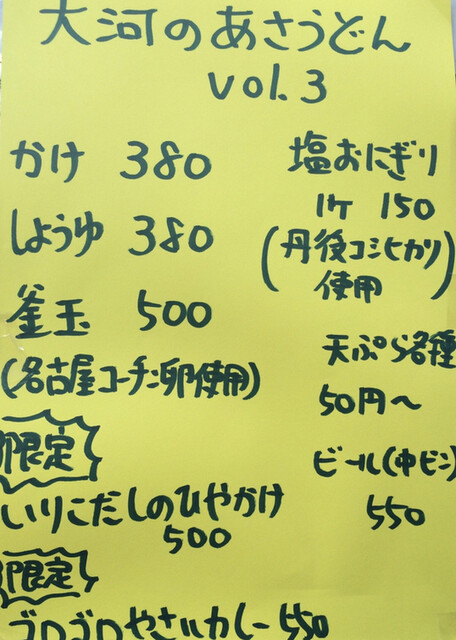 大河のあさうどん
vol.3
かけ 380
しょうゆ 380
釜玉 500
(名古屋コーチン卵使用)
限定
いりこだしのひやかけ
500
限定
ゴロゴロやさいカレー 550
塩おにぎり
1ケ 150
(丹後コシヒカリ
使用)
天ぷら各種
50円〜
ビール(中ビン)
550